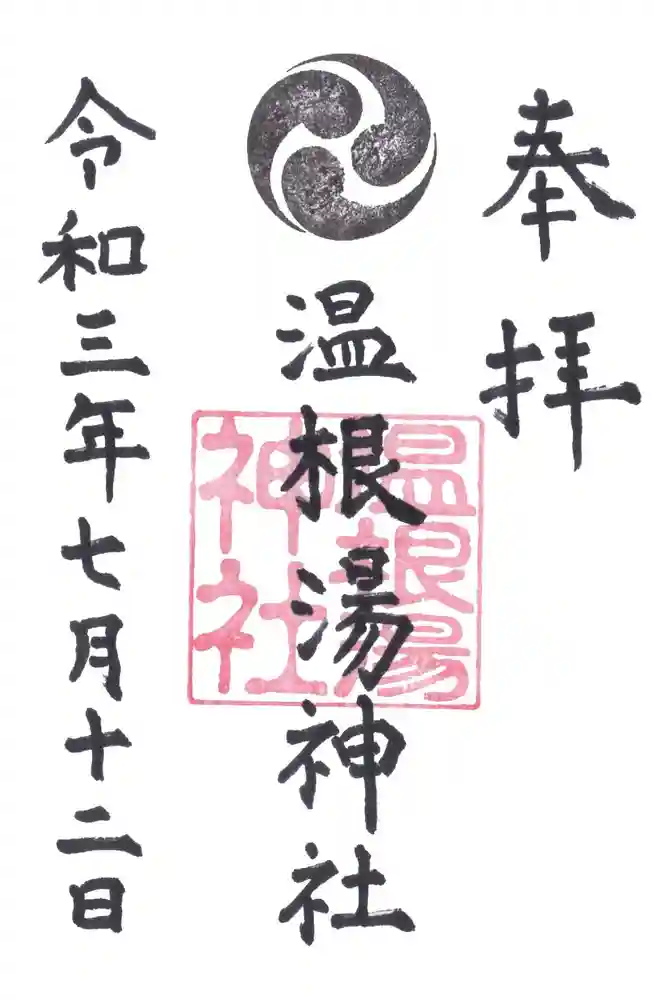 奉拝
温根湯神社
温根湯
神社
令和三年七月十二日